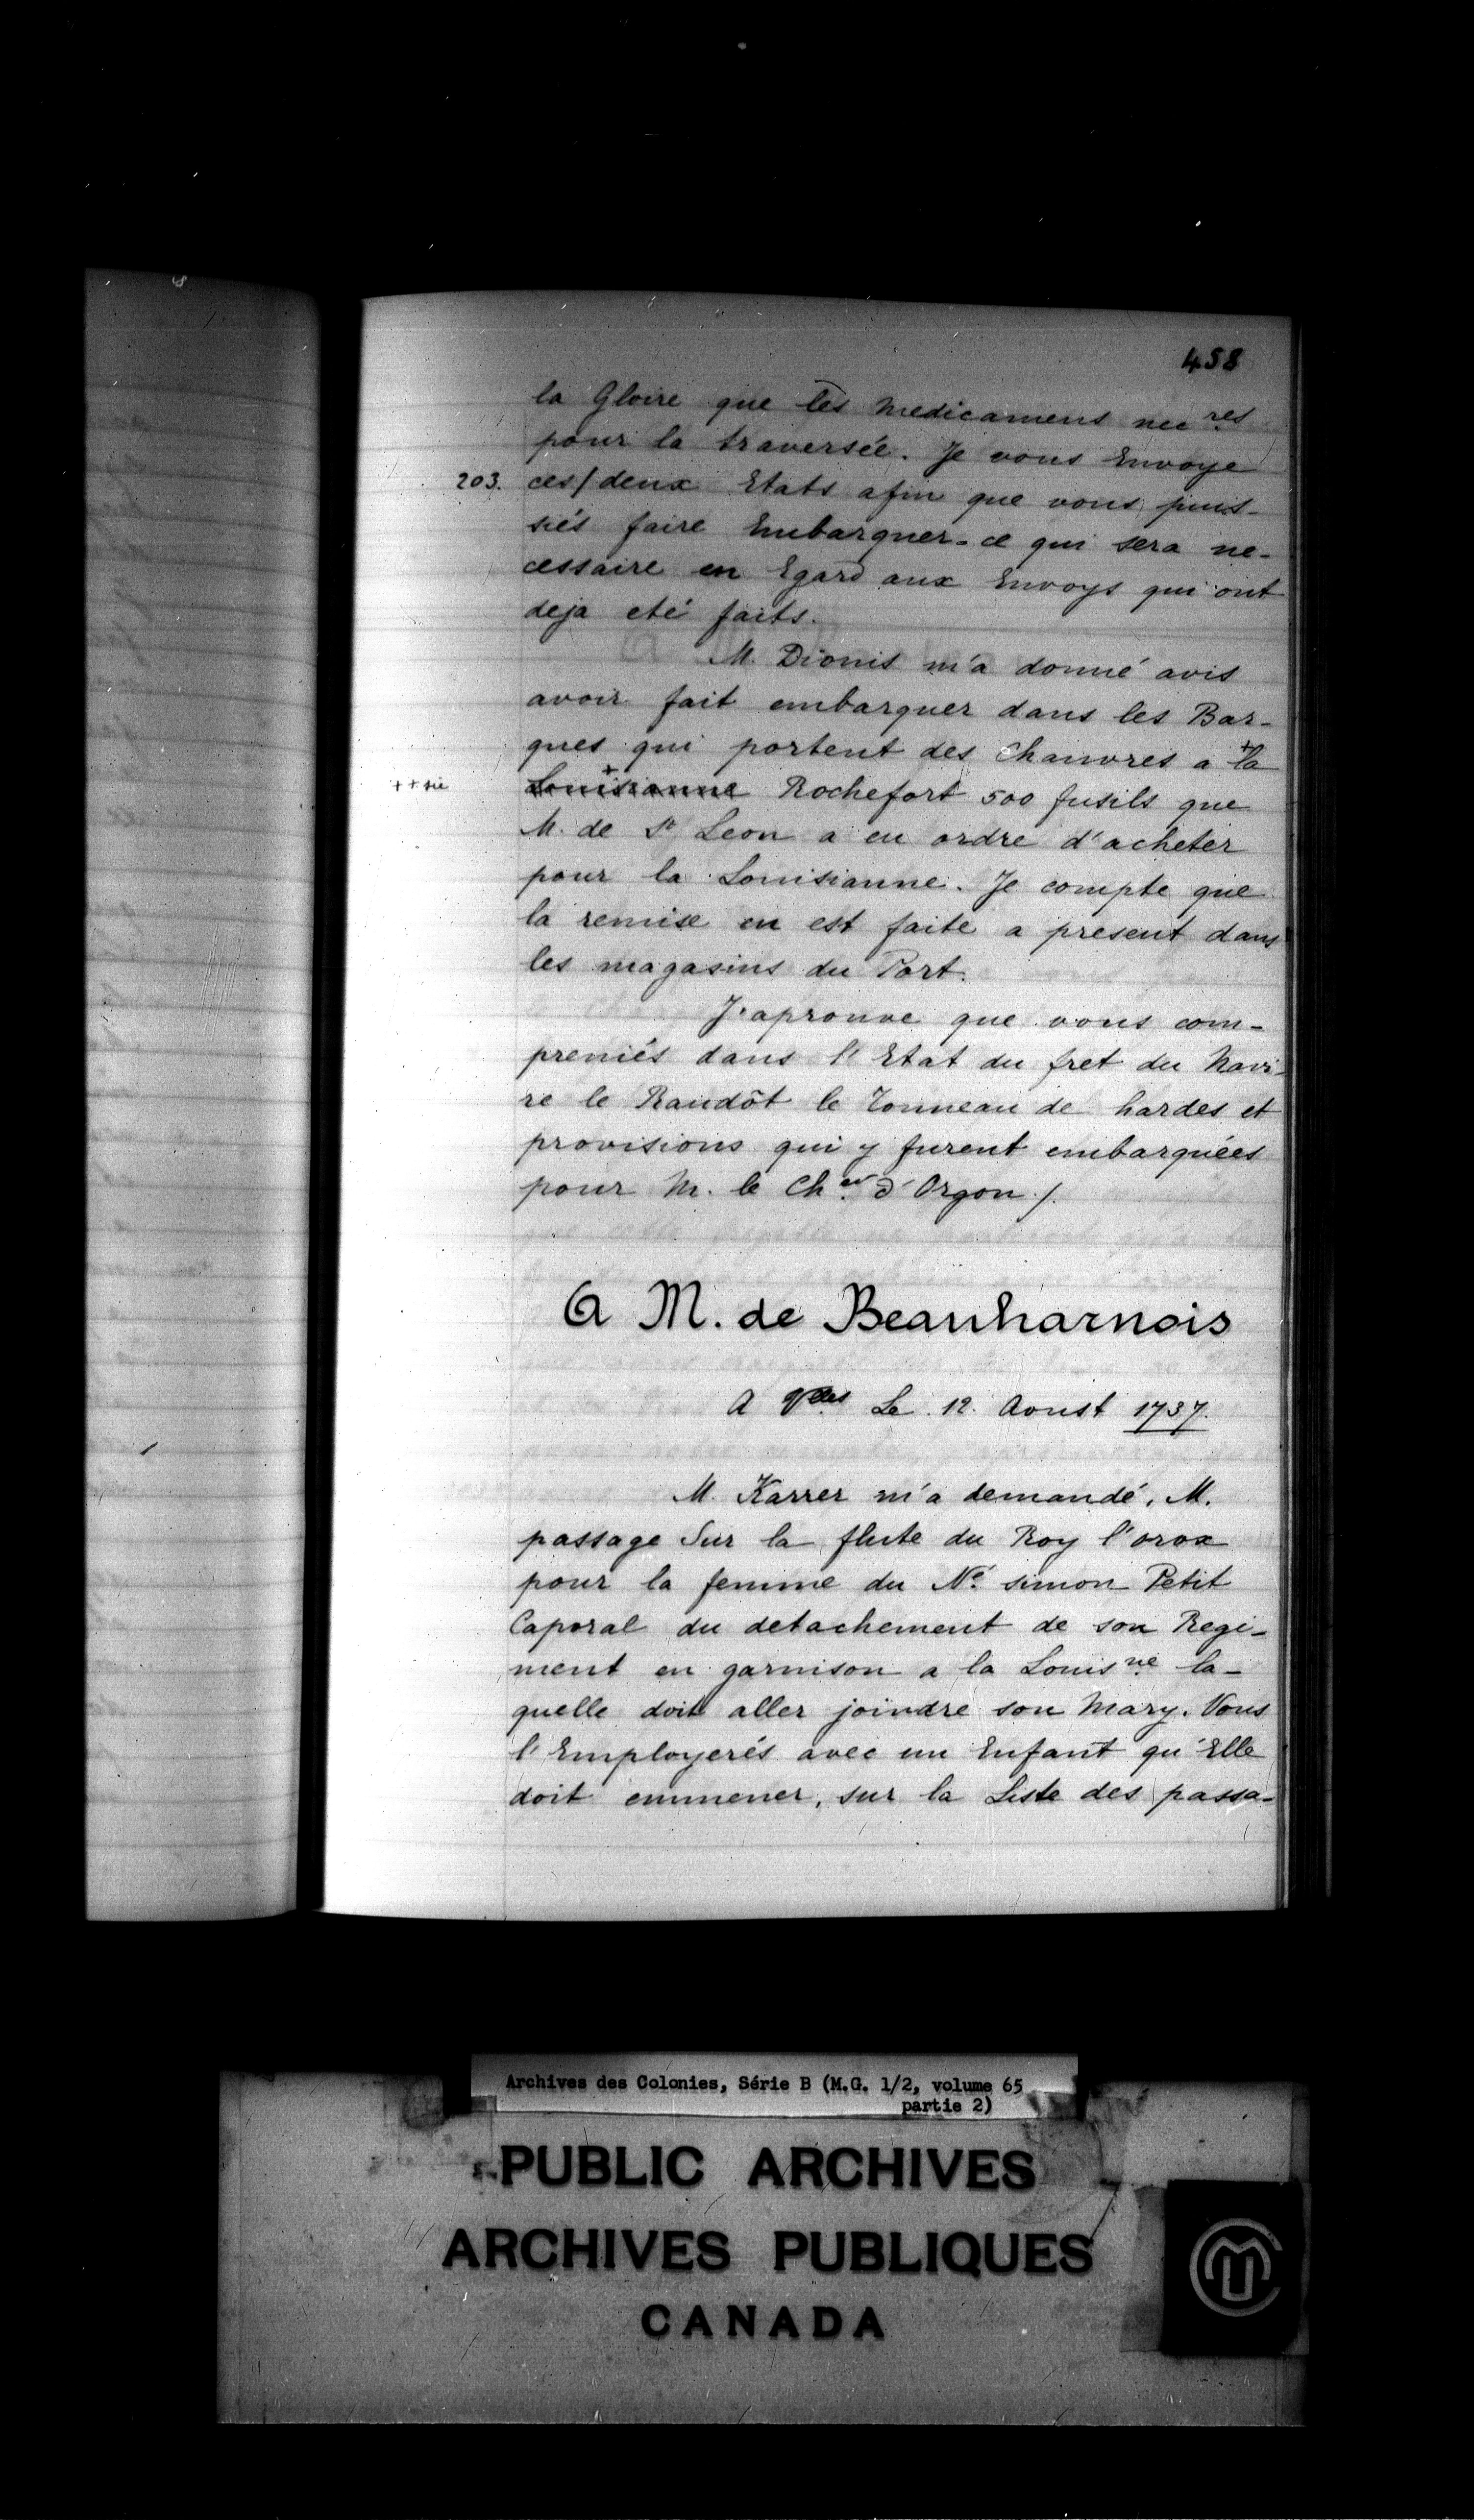 458
la Gloire que les medicamens necres
pour la traversée. Je vous Envoye
203. ces/deux Etats afin que vous puis-
siés faire Embarquer-ce qui sera ne-
cessaire en Egard aux Envoys qui ont
deja eté faits.
M. Dionis m'a donné avis
avoir fait embarquer dans les Bar-
ques qui portent des chanvres a +la
++ sic Louisianne Rochefort 500 fusils que
M. de St Leon a eu ordre d'acheter
pour la Louisianne. Je compte que
la remise en est faite a present dans
les magasins du Port.
J'aprouve que vous com-
preniés dans l'Etat du fret du Navi-
re le Raudôt le Tonneau de hardes et
provisions qui y furent embarquées
pour M. le Cher d'Orgon /.
A M. de Beauharnois
A Vlles Le 12. Aoust 1737.
M. Karrer m'a demandé, M.
passage Sur la flute du Roy l'orox
pour la femme du Né simon Petit
Caporal du detachement de son Regi-
ment en garnison a la Louisne la-
quelle doit aller joindre son Mary. Vous
l'Employerés avec un Enfant qu'Elle
doit emmener, sur la Liste des passa-
Archives des Colonies, Série B (M.G. 1/2, volume 65
partie 2)
PUBLIC ARCHIVES
ARCHIVES PUBLIQUES
CANADA